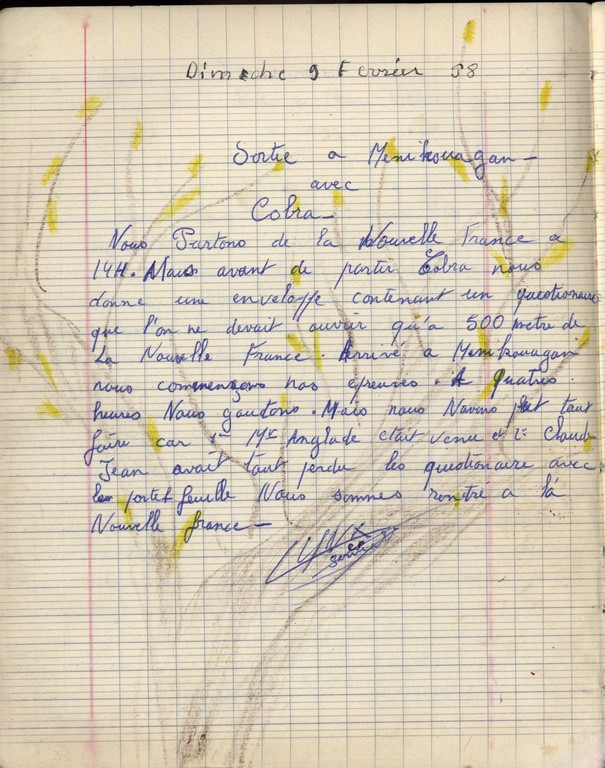 Dimache 9 Fevrier 58
Sortie a Menikouagan -
avec
Cobra -
Nous Partons de la Nouvelle France à
14H. Mais avant de partir Cobra nous
donne une enveloppe contenant un questionaire
que l'on ne devait ouvrir qu'a 500 metre de
La Nouvelle France. Arrivé a Menikouagan
nous commençons nos epreuves. A quatres
heures Nous goutons. Mais nous Navons pat tout
faire car 1° Mr Anglade etait venu et 2° Claude
Jean avait tout perdu les questionaire avec
le portef feuille Nous sommes rentré a la
Nouvelle france -
LYNX